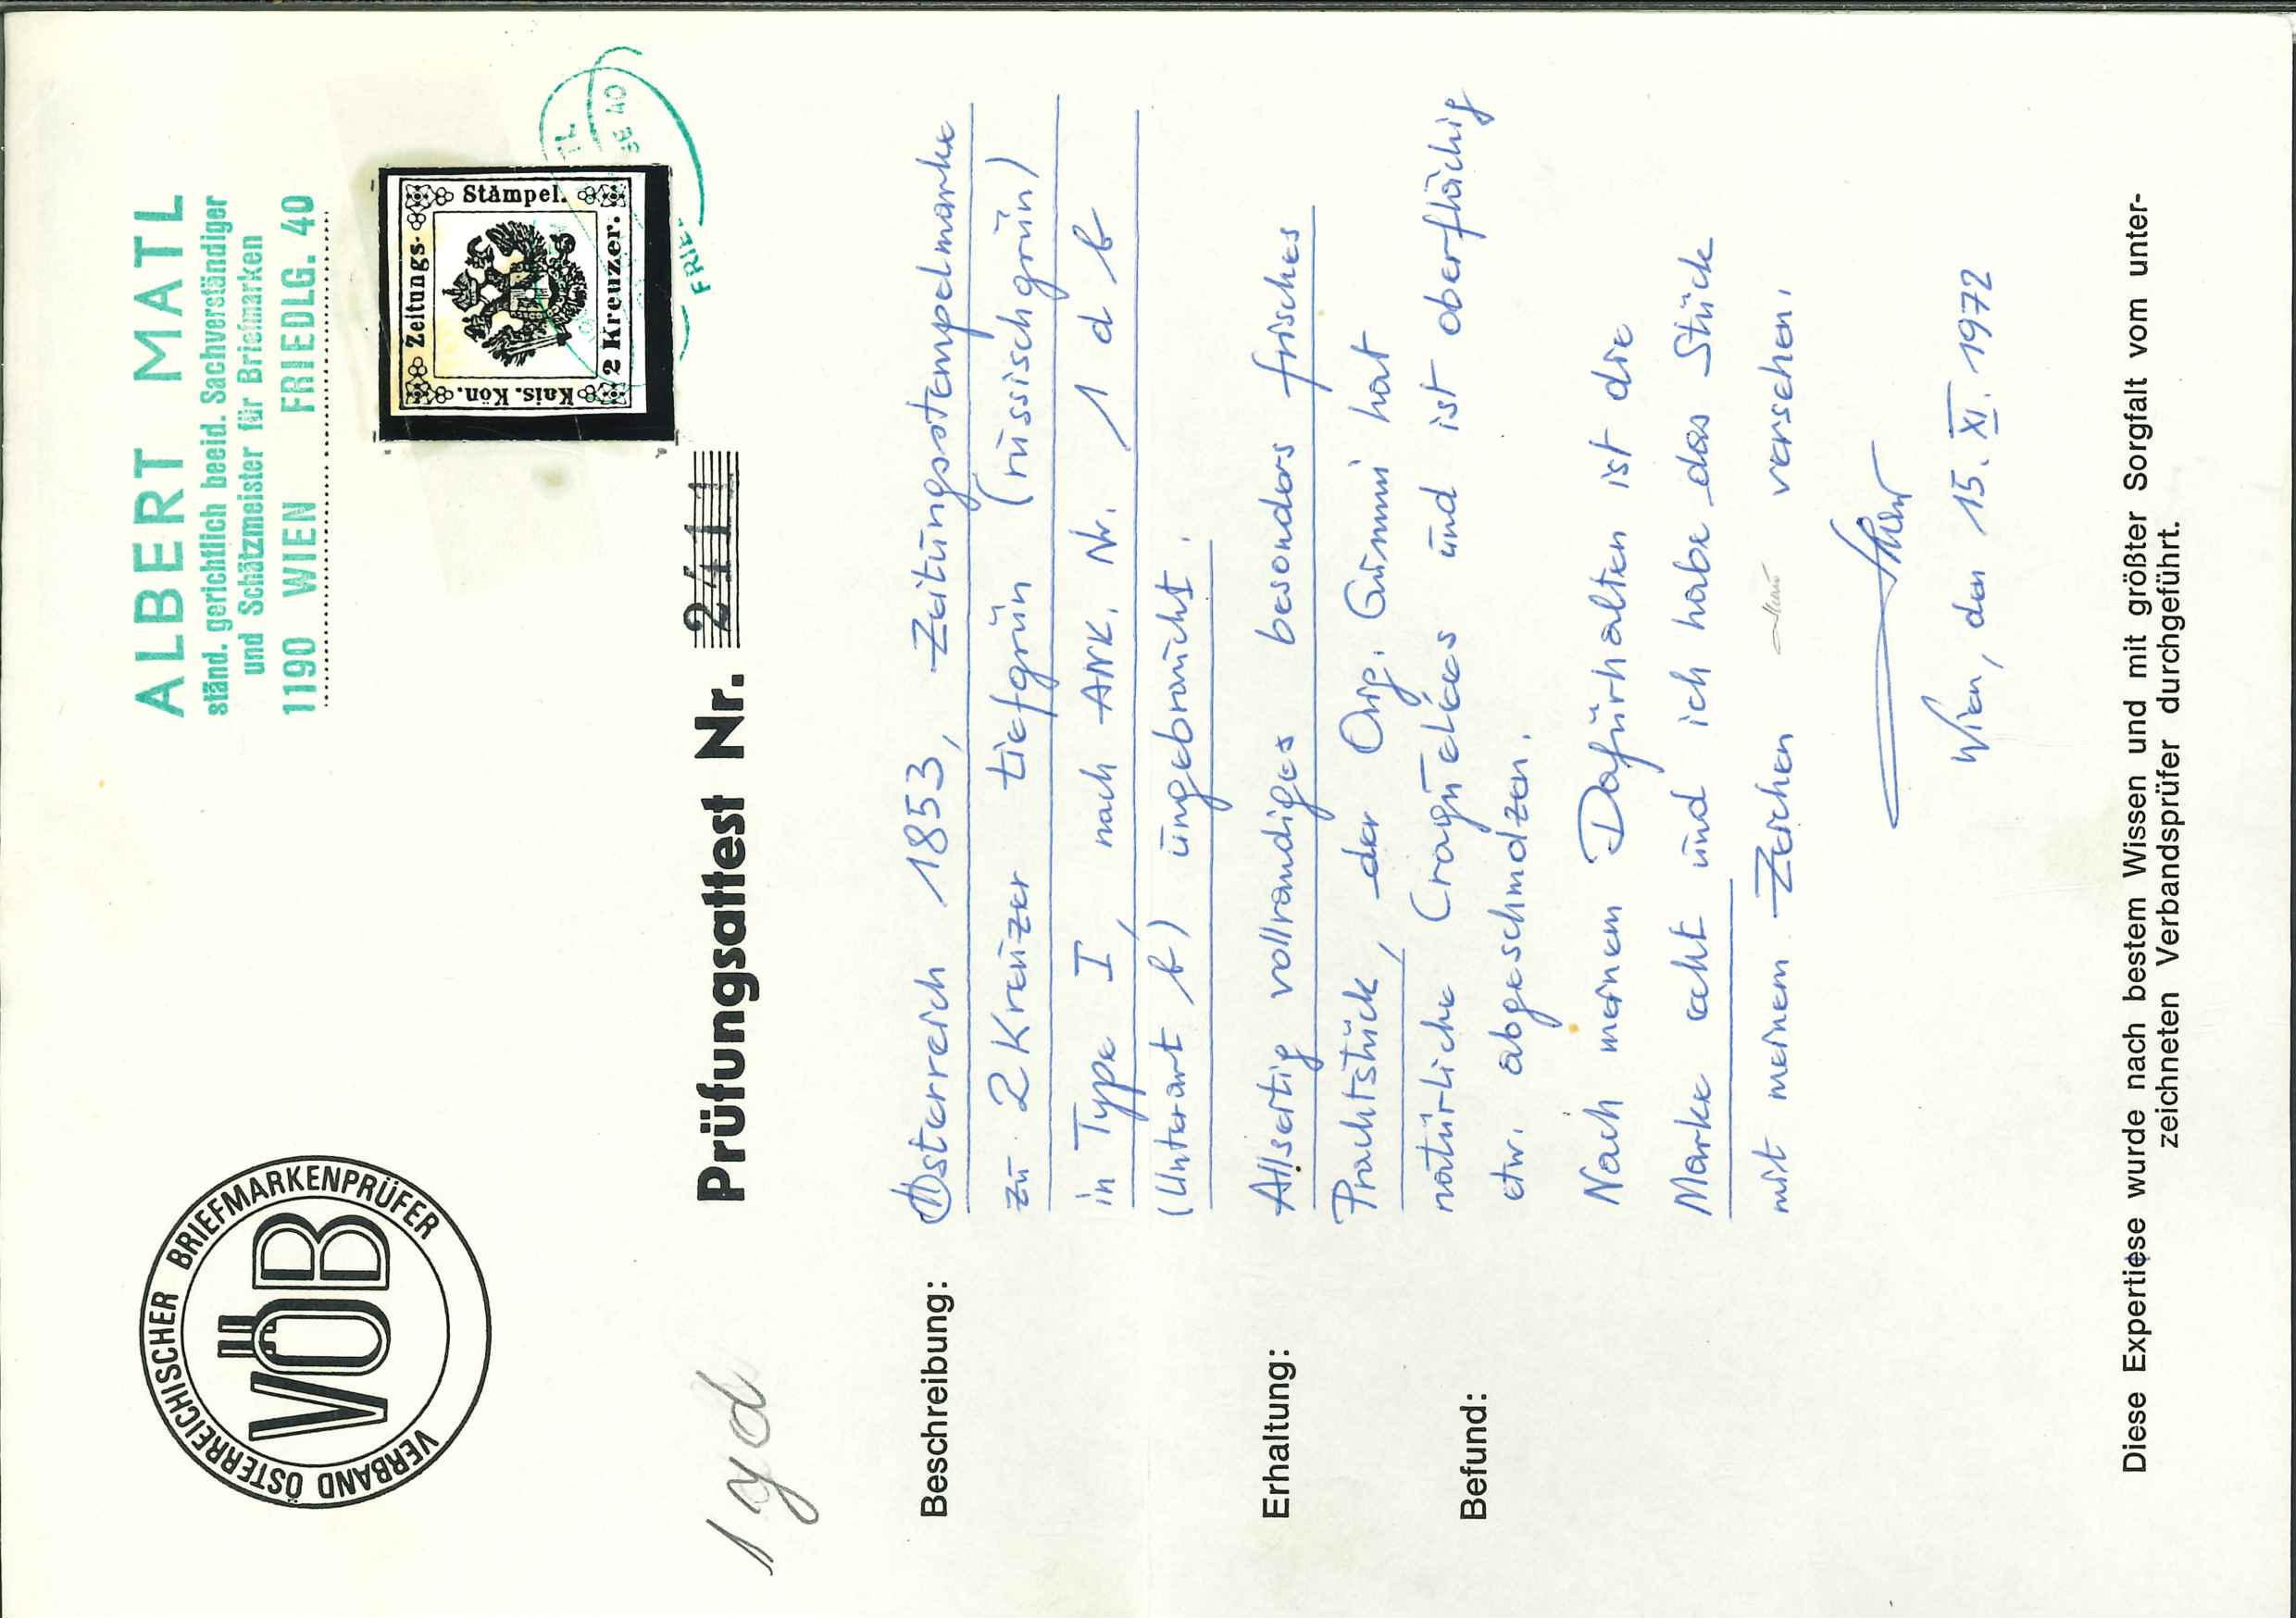 VERBAND ÖSTERREICHISCHER BRIEFMARKENPRÜFER
VÖB
ALBERT MATL
ständ. gerichtlich beeid. Sachverständiger
und Schätzmeister für Briefmarken
1190 WIEN FRIEDLG. 40
Zeitungs-
Stämpel.
Kais. Kön.
2 Kreuzer.
FRIE
40
1 yd
Prüfungsattest Nr. 2411
Beschreibung: Österreich 1853, Zeitungsstempelmarke
zu 2 Kreuzer tiefgrün (russischgrün)
in Type I, nach ANK. Nr. 1 d b
(Unterart b) ungebraucht.
Erhaltung: Allseitig vollrandiges besonders frisches
Prachtstück, der Orig. Gummi hat
natürliche Craquelées und ist oberflächig
Befund: etw. abgeschmolzen.
Nach meinem Dafürhalten ist die
Marke echt und ich habe das Stück
mit meinem Zeichen versehen.
Wien, den 15. XI. 1972
Diese Expertiese wurde nach bestem Wissen und mit größter Sorgfalt vom unter-
zeichneten Verbandsprüfer durchgeführt.